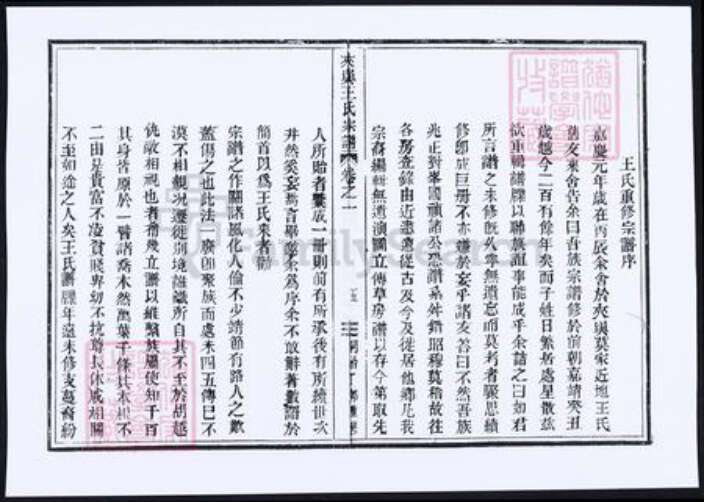 王氏重修宗譜序
嘉慶元年歲在丙辰余舍於夾與莫家近地王氏
舊友來舍告余曰吾族宗譜修於前朝嘉靖癸丑
歲越今二百有餘年矣而子姓日繁居處星散茲
欲重輯譜牒以聯族誼事能成乎余詰之曰如君
所言譜之未修既久寧無遺忘而莫考者驟思續
修即成巨册不亦難於妄乎諸友答曰不然吾族
兆正對峯國禎諸公恐譜系舛錯昭穆莫稽故往
各房查錄由近悉遠從古及今及徙居他鄉凡我
宗裔編輯無遺演圖立傳草房譜以存今第取先
夾與王氏宗譜 卷之一
人所貽者彙成一冊則前有所承後有所續世次
井然奚妄為言畢歛余為序余不敢辭著數語於
簡首以為王氏來者勸
宗譜之作關諸風化人倫不少靖節有路人之歎
蓋傷之也此法廢即聚族而處未四五傳已不
漠不相親况遷徙別境雖識所自其不至於胡越
仇敵相視也者稀幾立譜以維繫族屬使知千百
其身皆原於一譬諸喬木然萬葉千條其木根不
二由是貴富不凌貧賤卑幼不抗尊長休戚相關
不至如途之人矣王氏譜牒年遠未修支蔓裔紛